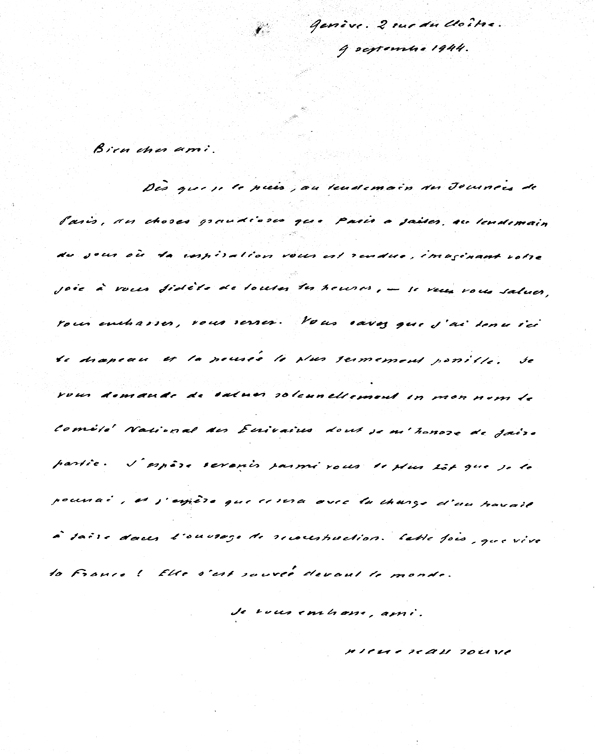 Genève. 2 rue du Cloître.
9 septembre 1944.
Bien cher ami.
Dès que je le puis, au lendemain des Journées de
Paris, des choses grandioses que Paris a faites, au lendemain
du jour où la respiration vous est rendue, imaginant votre
joie à vous fidèle de toutes les heures, — je veux vous saluer,
vous embrasser, vous serrer. Vous savez que j'ai tenu ici
le drapeau et la pensée le plus fermement possible. Je
vous demande de saluer solennellement en mon nom le
Comité National des Ecrivains dont je m'honore de faire
partie. J'espère revenir parmi vous le plus tôt que je le
pourrai, et j'espère que ce sera avec la charge d'un travail
à faire dans l'ouvrage de reconstruction. Cette fois, que vive
la France ! Elle s'est sauvée devant le monde.
Je vous embrasse, ami.
Pierre Jean Jouve